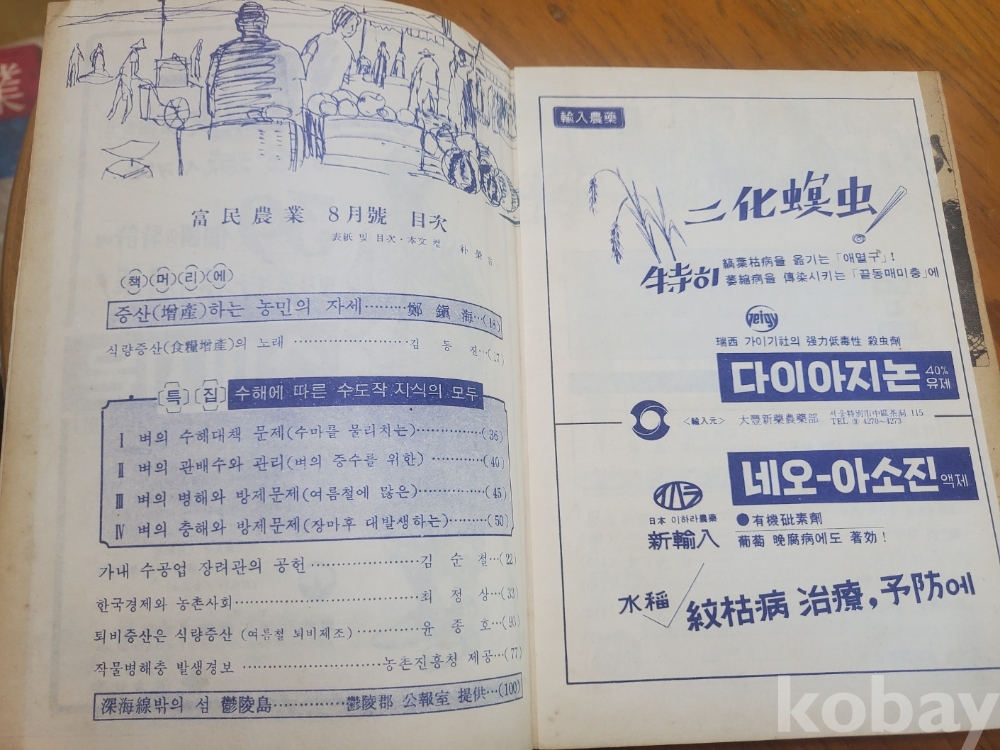 業
富民農業 8月號 目次
表紙 및 目次·本文 컷 朴
(책)(머)(리)(에)
증산(增產)하는 농민의 자세………鄭鎭海…(18)
식량증산(食糧增產)의 노래………김동진…(17)
특집 수해에 따른 수도작 지식의 모두
Ⅰ 벼의 수해대책 문제(수마를 물리치는)………(36)
Ⅱ 벼의 관배수와 관리(벼의 증수를 위한)………(40)
Ⅲ 벼의 병해와 방제문제(여름철에 많은)………(45)
Ⅳ 벼의 충해와 방제문제(장마후 대발생하는)………(50)
가내 수공업 장려관의 공헌………김순철…(22)
한국경제와 농촌사회………최정상…(33)
퇴비증산은 식량증산 (여름철 퇴비제조)………윤종호…
작물병해충 발생경보………농촌진흥청 제공…(77)
深海線밖의 섬 鬱陵島………鬱陵郡 公報室 提供…(100)
輸入農藥
二化螟虫!
特히 縞葉枯病을 옮기는「애멸구」!
萎縮病을 傳染시키는「끝동매미충」에
Geigy
瑞西 가이기社의 强力低毒性 殺虫劑
다이아지논 40% 유제
<輸入元> 大豐新藥農藥部 서울特別市中區茶洞 115
TEL ③ 4270~4273
네오-아소진 액제
イハラ
日本 이하라農藥
新輸入
●有機砒素劑
葡萄 晩腐病에도 著効!
水稲 紋枯病 治療, 予防에
kobay